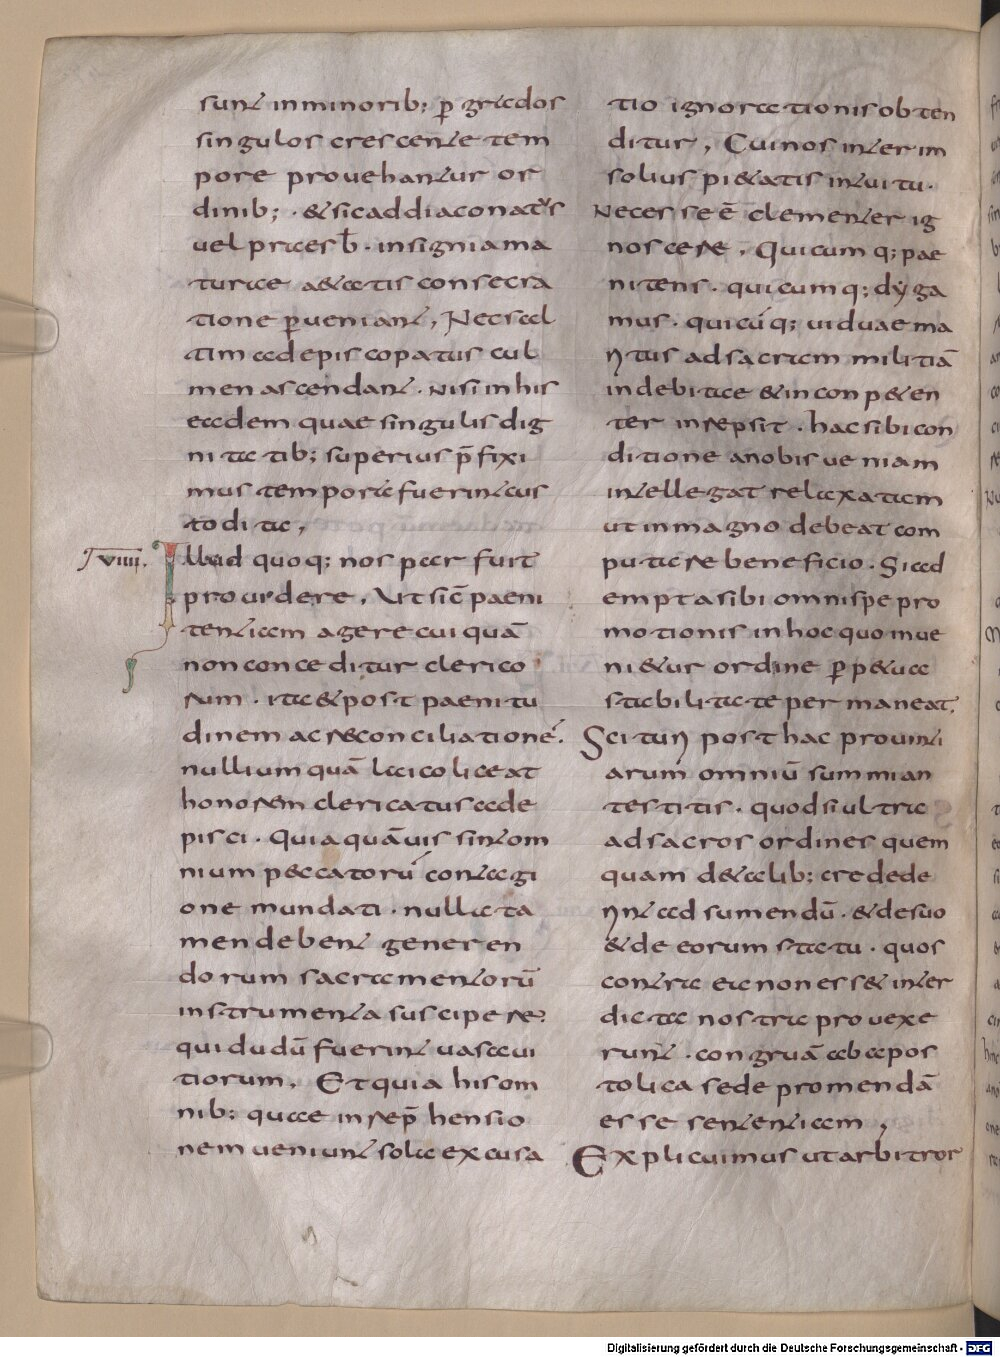 sunt inminorib; p̱ grados
singulos crescente tem
pore prouehantur or
dinib; · &sicaddiaconatus
uel praesb̄ · insigniama
turae a&atis consecra
tione p̱ueniant, Necsal
tim adepiscopatus cul
men ascendant · Nisiinhis
eadem quae singulis dig
nitatib; superius p̄fixi
mus tempora fuerintcus
todita,
VIIII. Illud quoq; nos par fuit
prouidere, Ut sic̄ paeni
tentiam agere cuiquā
nonconceditur clerico
rum · ita&post paenitu
dinem acreconciliationē ·
nulliumquā laicoliceat
honorem clericatusade
pisci · Quiaquāuis sintom
nium peccatorū contagi
one mundati · nullata
mendebent generen
dorum sacramentorū
instrumentasuscipere;
quidudū fuerint uasaui
tiorum, Et quia hisom
nib; quae inrep̄hensio
nem ueniunt sola excusa
tio ignorationisobten
ditur, Cuinos interim
solius pi&atis intuitu ·
Necesse ē clementer ig
noscere, Quicumq; pae
nitens · quicumq; dyga
mus · quicūq; uiduaema
ritus adsacram militiā
indebitae &inconp&en
ter inrepsit · hacsibicon
ditione anobisueniam
intellegat relaxatam
utinmagno debeat com
putare beneficio · Siad
emptasibi omnispe pro
motionis inhocquoinue
ni&ur ordine p̱p&ua
stabilitate permaneat,
Scituri posthac prouinti
arum omniū summian
testitis · quodsiultra
adsacros ordines quem
quam d&alib; credede
rint adsumendū · &desuo
&de eorum statu · quos
contra eanoness& inter
dicta nostra prouexe
runt · congruā abapos
tolica sede promendā
esse sententiam,
Explicuimus utarbitror
Digitalisierung gefördert durch die Deutsche Forschungsgemeinschaft - DFG